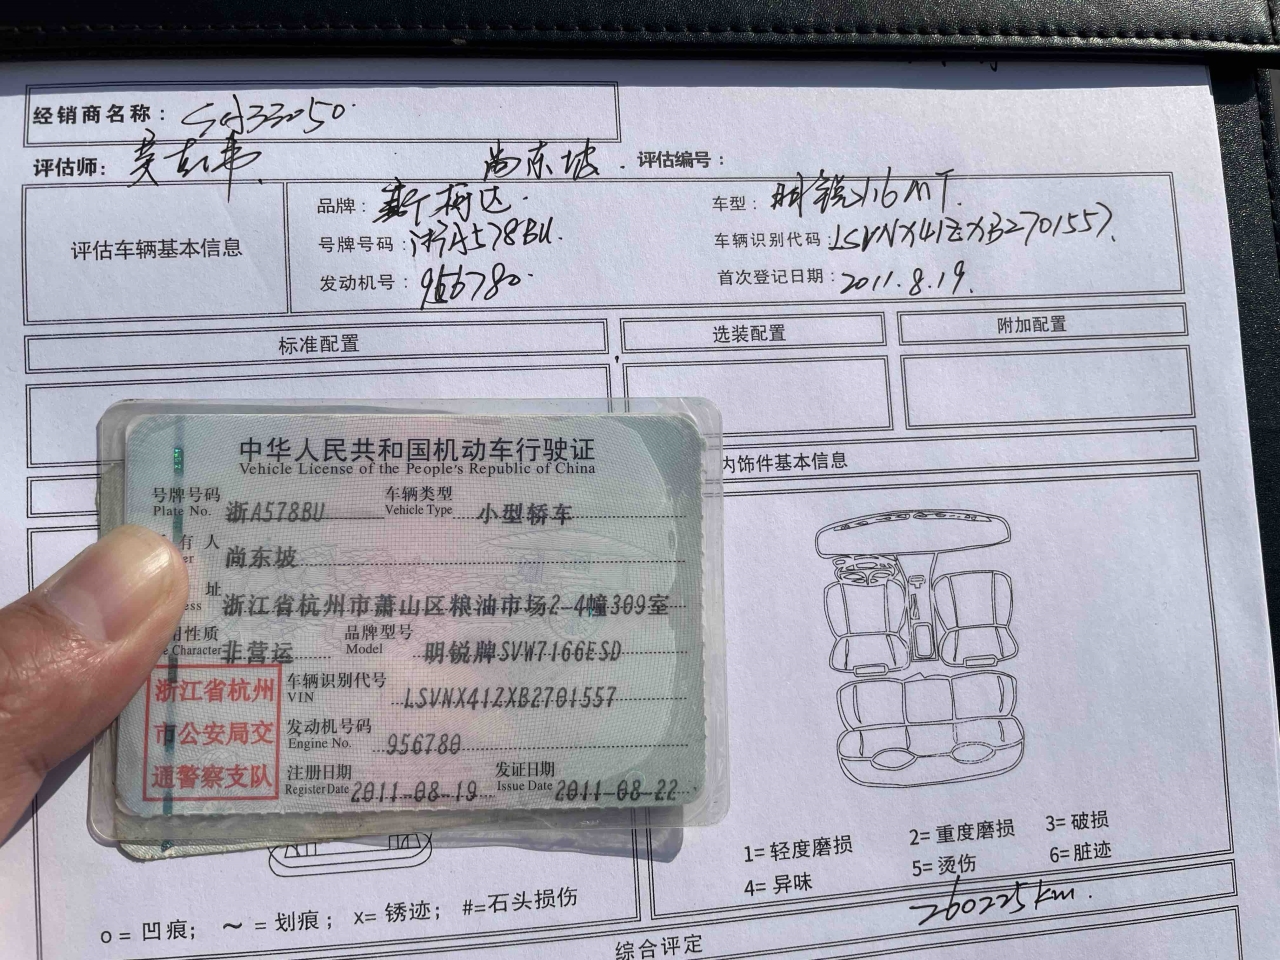 经销商名称： SQ33050
评估师： 吴志伟 尚东坡 评估编号：
评估车辆基本信息
品牌： 斯柯达 车型： 明锐1.6MT
号牌号码： 浙A578BU 车辆识别代码： LSVNX41ZXB2701557
发动机号： 956780 首次登记日期： 2011.8.19
标准配置 选装配置 附加配置
内饰件基本信息
中华人民共和国机动车行驶证
Vehicle License of the People's Republic of China
号牌号码 浙A578BU 车辆类型 小型轿车
Plate No. Vehicle Type
有人 尚东坡
址 浙江省杭州市萧山区粮油市场2-4幢309室
用性质 非营运 品牌型号 明锐牌SVW7166ESD
Character Model
浙江省杭州
市公安局交
通警察支队
车辆识别代号 LSVNX41ZXB2701557
VIN
发动机号码 956780
Engine No.
注册日期 2011-08-19 发证日期 2011-08-22
Register Date Issue Date
1=轻度磨损 2=重度磨损 3=破损
4=异味 5=烫伤 6=脏迹
260225km
o=凹痕； ～=划痕； x=锈迹； #=石头损伤
综合评定